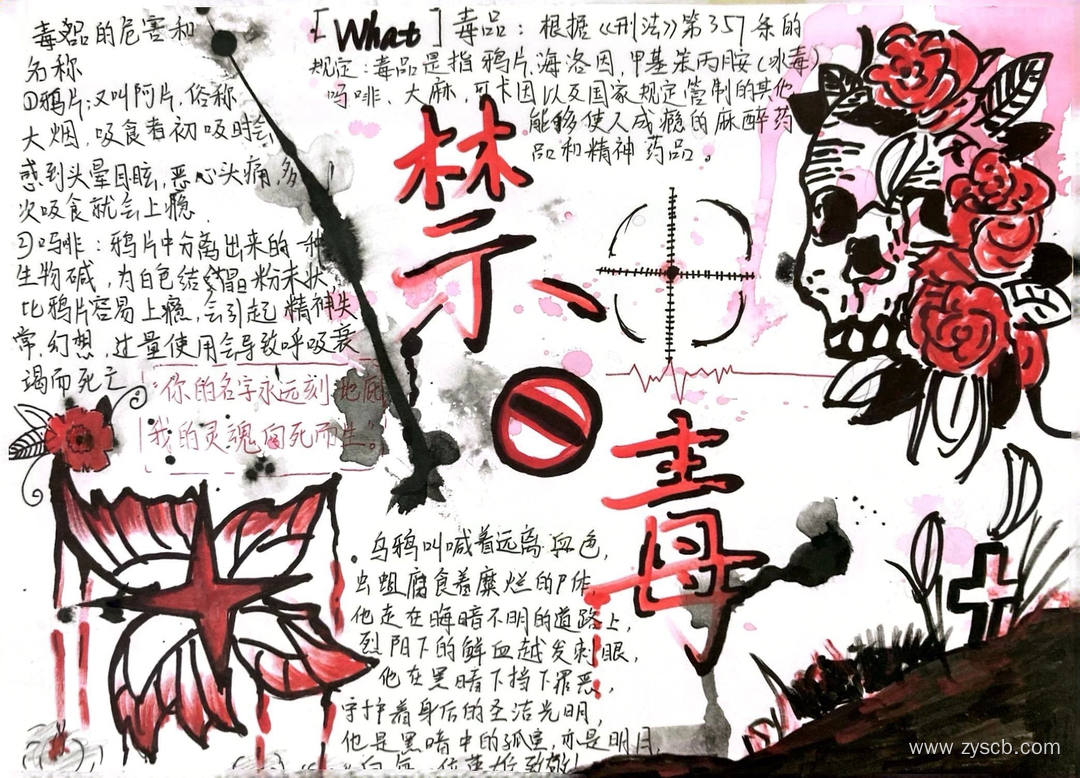 毒品的危害和
名称
①鸦片:又叫阿片,俗称
大烟,吸食者初吸时会
感到头晕目眩,恶心头痛,多
次吸食就会上瘾.
2)吗啡:鸦片中分离出来的一种
生物碱,为白色结晶粉末状
比鸦片容易上瘾,会引起精神失
常,幻想,过量使用会导致呼吸衰
竭而死亡
“你的名字永远刻
我的灵魂向死而生.”
[What]毒品:根据《刑法》第357条的
规定:毒品是指鸦片,海洛因,甲基苯丙胺(冰毒)
吗啡、大麻,可卡因以及国家规定管制的其他
能够使人成瘾的麻醉药
品和精神药品。
禁、
毒
乌鸦叫喊着远离血色,
虫蛆腐食着糜烂的尸体
他走在晦暗不明的道路上,
烈阳下的鲜血越发刺眼,
他在黑暗下挡下罪恶,
守护着身后的圣洁光明,
他是黑暗中的孤 亦是明月,
www.zyscb.com